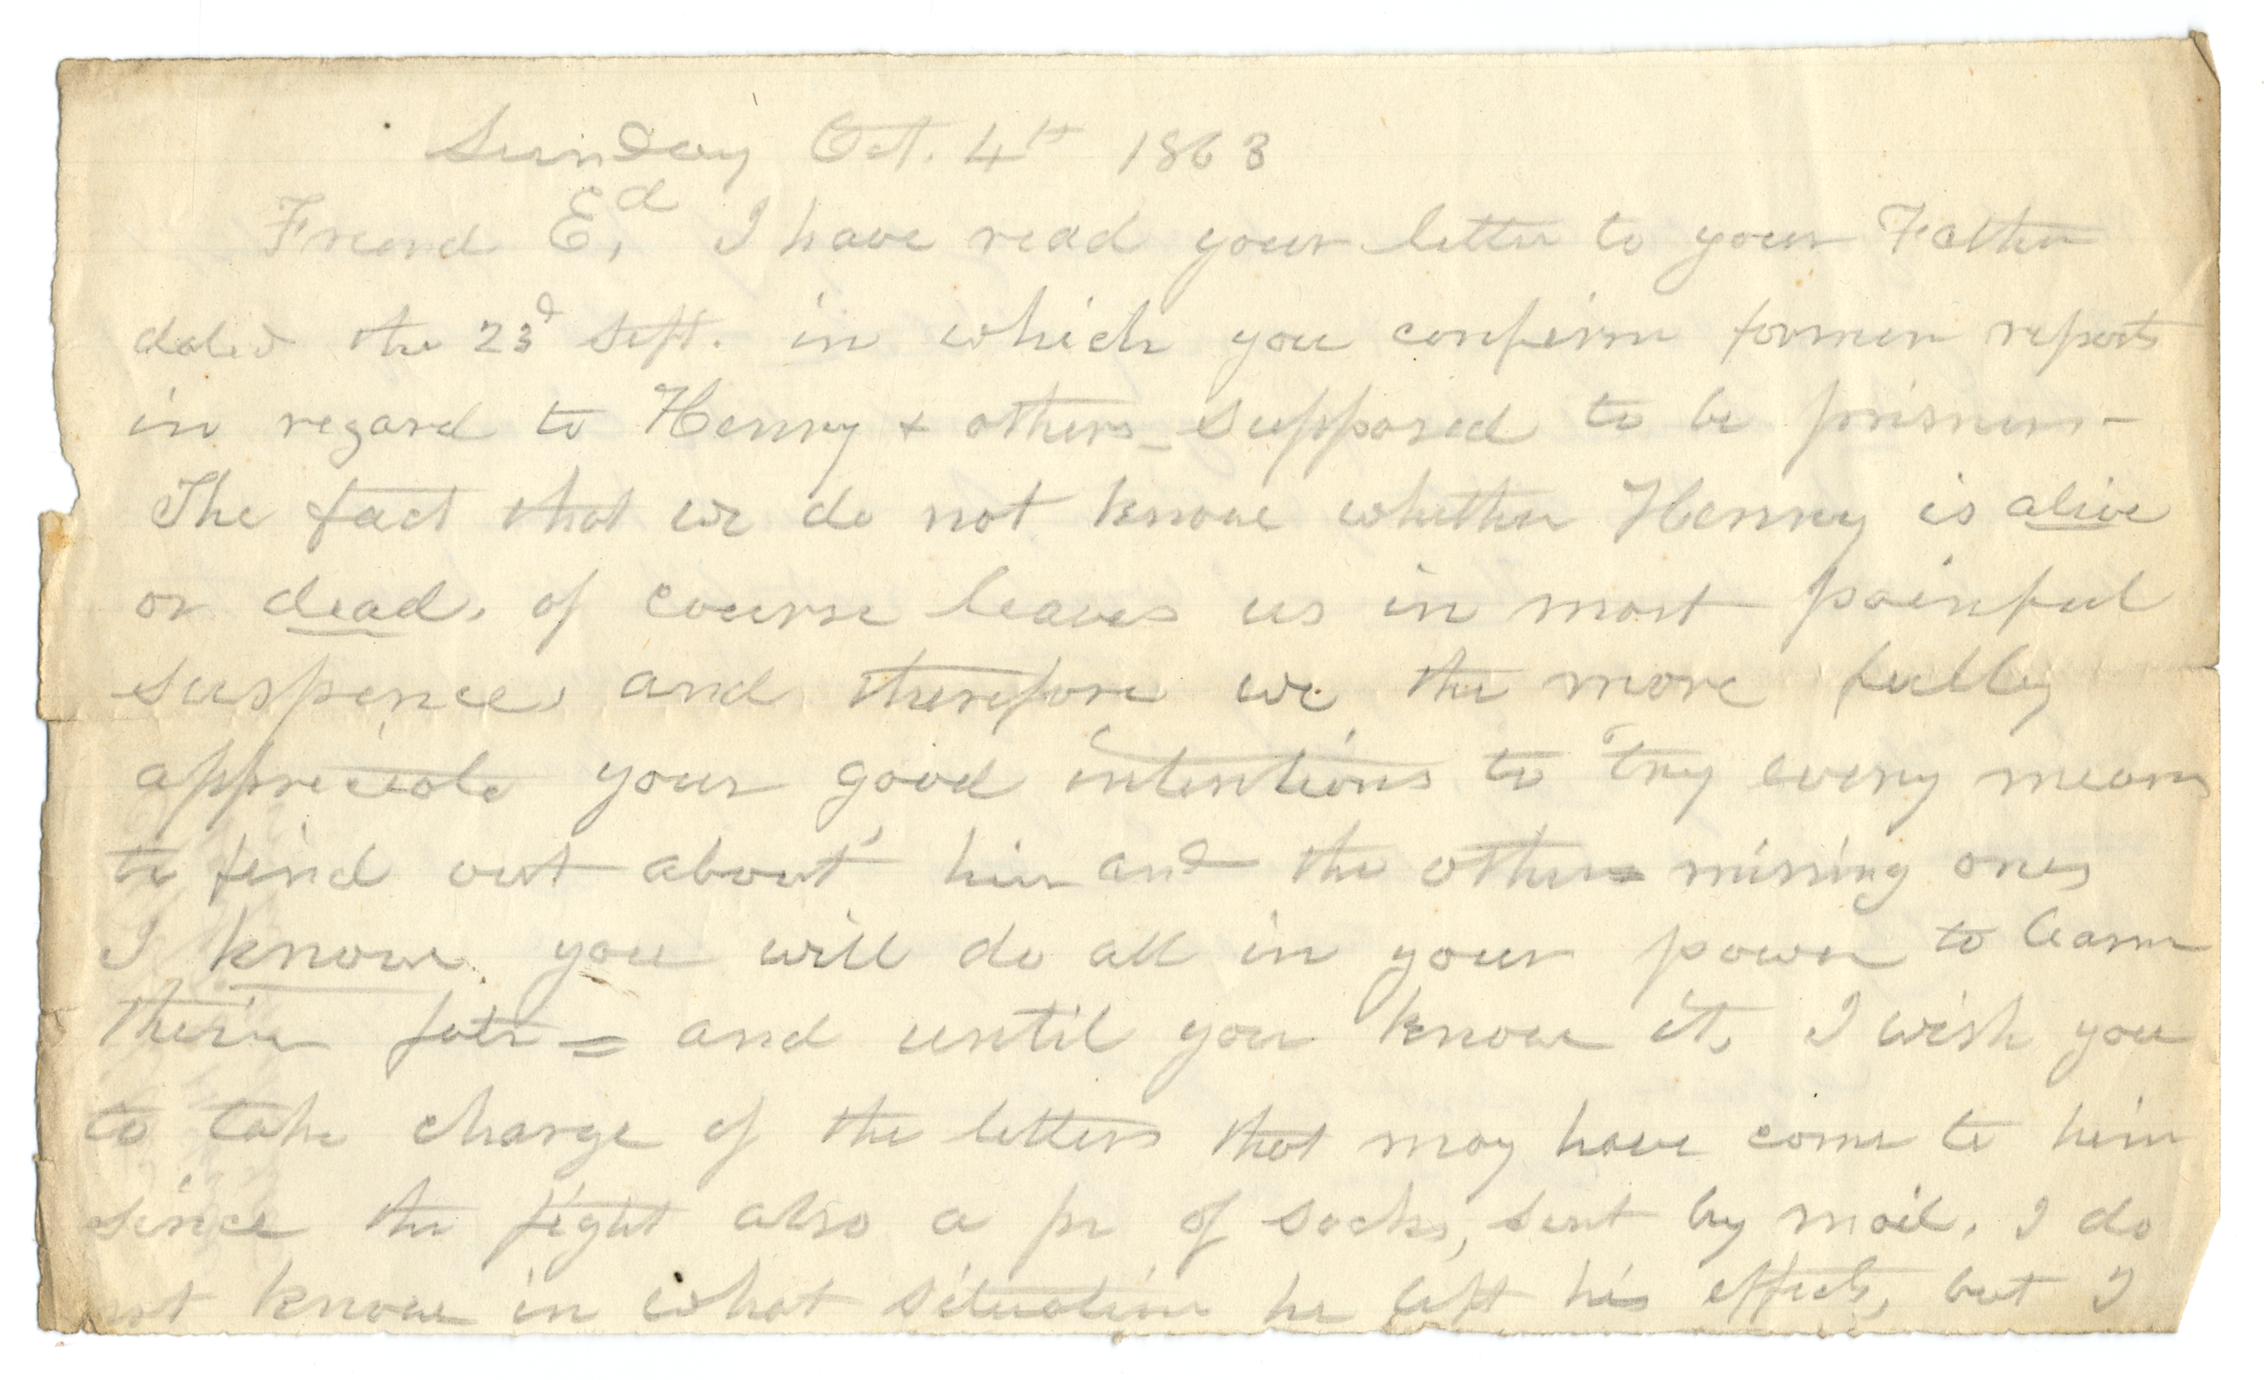 Sunday Oct. 4th 1863
Friend Ed, I have read your letter to your Father
dated the 23d Sept. in which you confirm former reports
in regard to Henry + others - supposed to be prisners -
The fact that we do not know whether Henry is alive
or dead, of course leaves us in most painful
suspence, and therefore we the more fully
appreciate your good intentions to try every means
to find out about him and the other = missing ones
I know you will do all in your power to learn
their fate = and until you know it, I wish you
to take charge of the letters that may have come to him
since the fight also a pr of socks, sent by mail. I do
not know in what situation he left his effects, but I